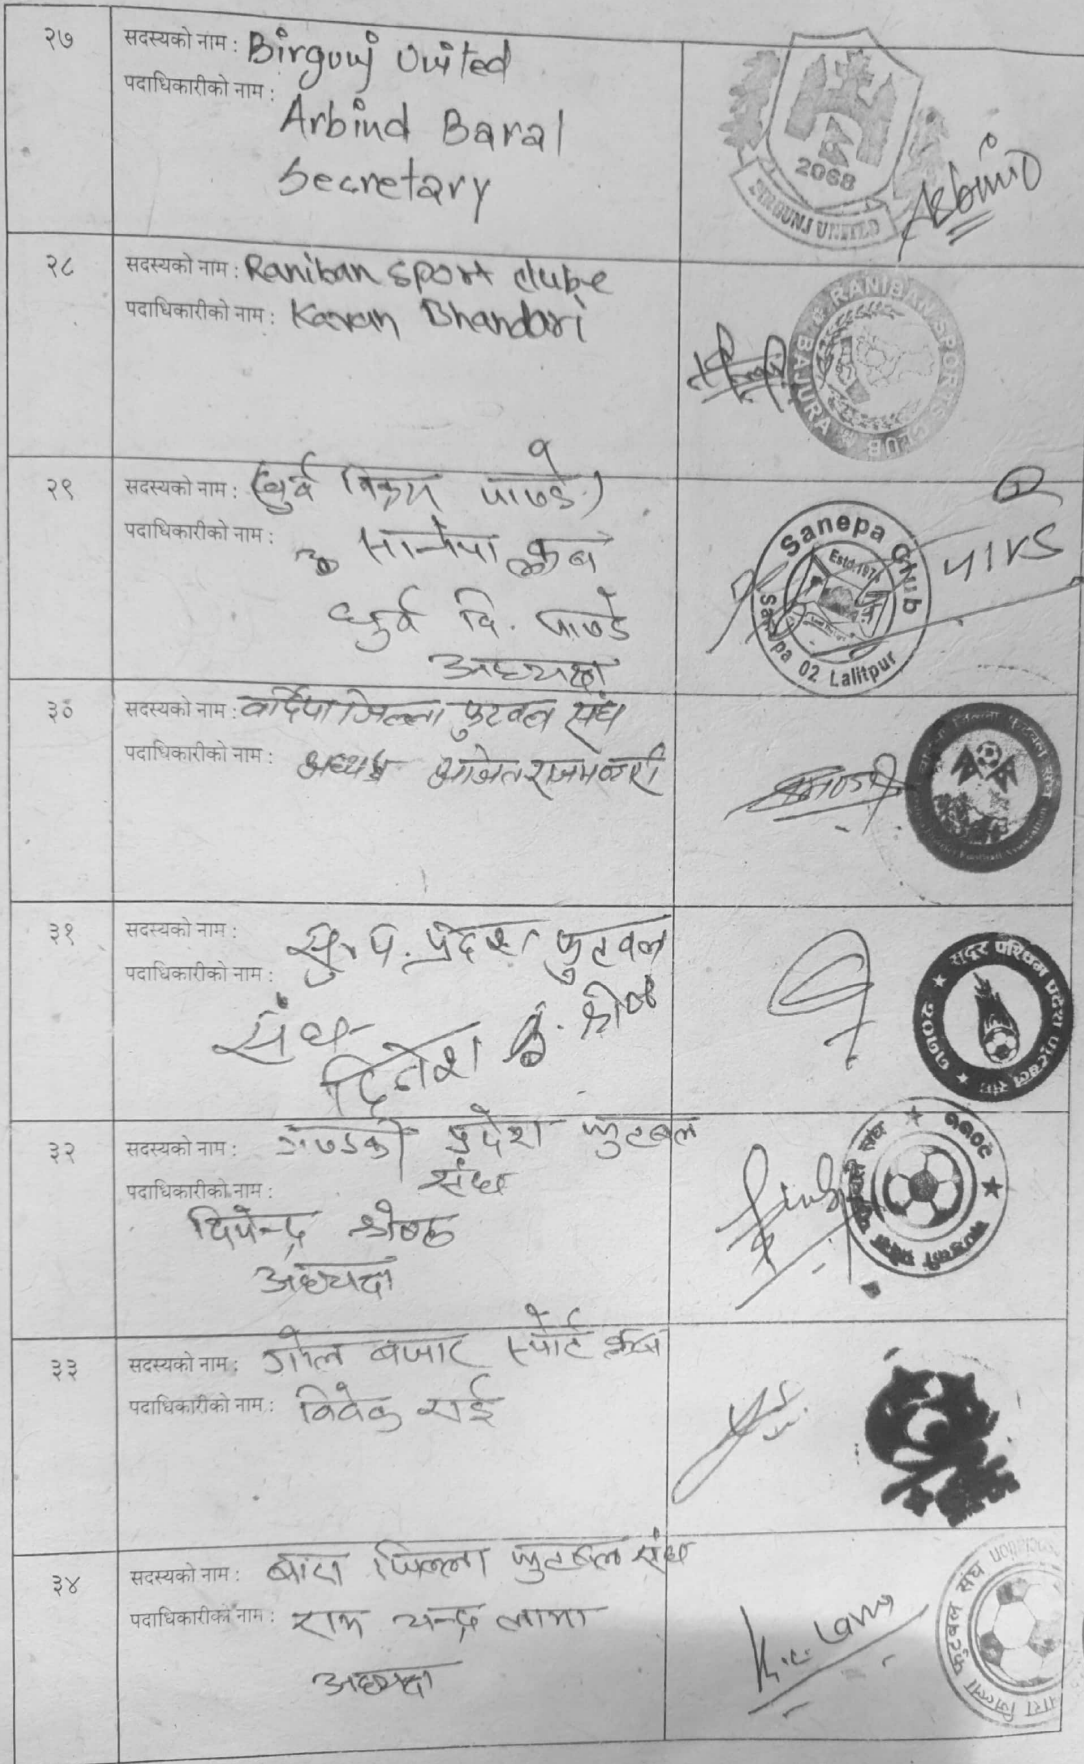 २७
सदस्यको नाम : Birgunj United
पदाधिकारीको नाम :
Arbind Baral
Secretary
2068
BIRGUNJ UNITED
Arbind
२८
सदस्यको नाम : Raniban sport clube
पदाधिकारीको नाम : Karan Bhandari
RANIBAN SPORTS CLUB
BAJURA
२९
सदस्यको नाम : (ध्रुर्व विक्रम पाण्डे)
पदाधिकारीको नाम :
सानेपा क्लब
ध्रुर्व वि. पाण्डे
अध्यक्ष
Sanepa Club
Estd.1974
Sanepa 02 Lalitpur
३०
सदस्यको नाम : वर्दिया जिल्ला फुटवल संघ
पदाधिकारीको नाम : अध्यक्ष
३१
सदस्यको नाम : सु.प. प्रदेश फुटवल
पदाधिकारीको नाम :
संघ
दिनेश
सुदूर पश्चिम प्रदेश फुटबल संघ
३२
सदस्यको नाम : गण्डकी प्रदेश फुटबल
संघ
पदाधिकारीको नाम :
दिपेन्द्र श्रेष्ठ
अध्यक्ष
गण्डकी प्रदेश फुटबल संघ
३३
सदस्यको नाम : गोल बजार स्पोर्ट क्लब
पदाधिकारीको नाम : विवेक राई
३४
सदस्यको नाम : बारा जिल्ला फुटबल संघ
पदाधिकारीको नाम : राम चन्द्र लामा
अध्यक्ष
बारा जिल्ला फुटबल संघ